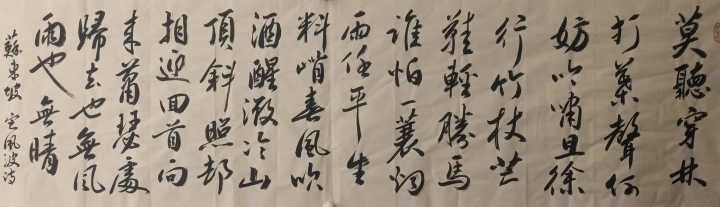 莫聽穿林
打葉聲何
妨吟嘯且徐
行竹杖芒
鞋輕勝馬
誰怕一蓑烟
雨任平生
料峭春風吹
酒醒微冷山
頂斜照却
相迎回首向
來蕭瑟處
歸去也無風
雨也無晴
蘇東坡定風波詩